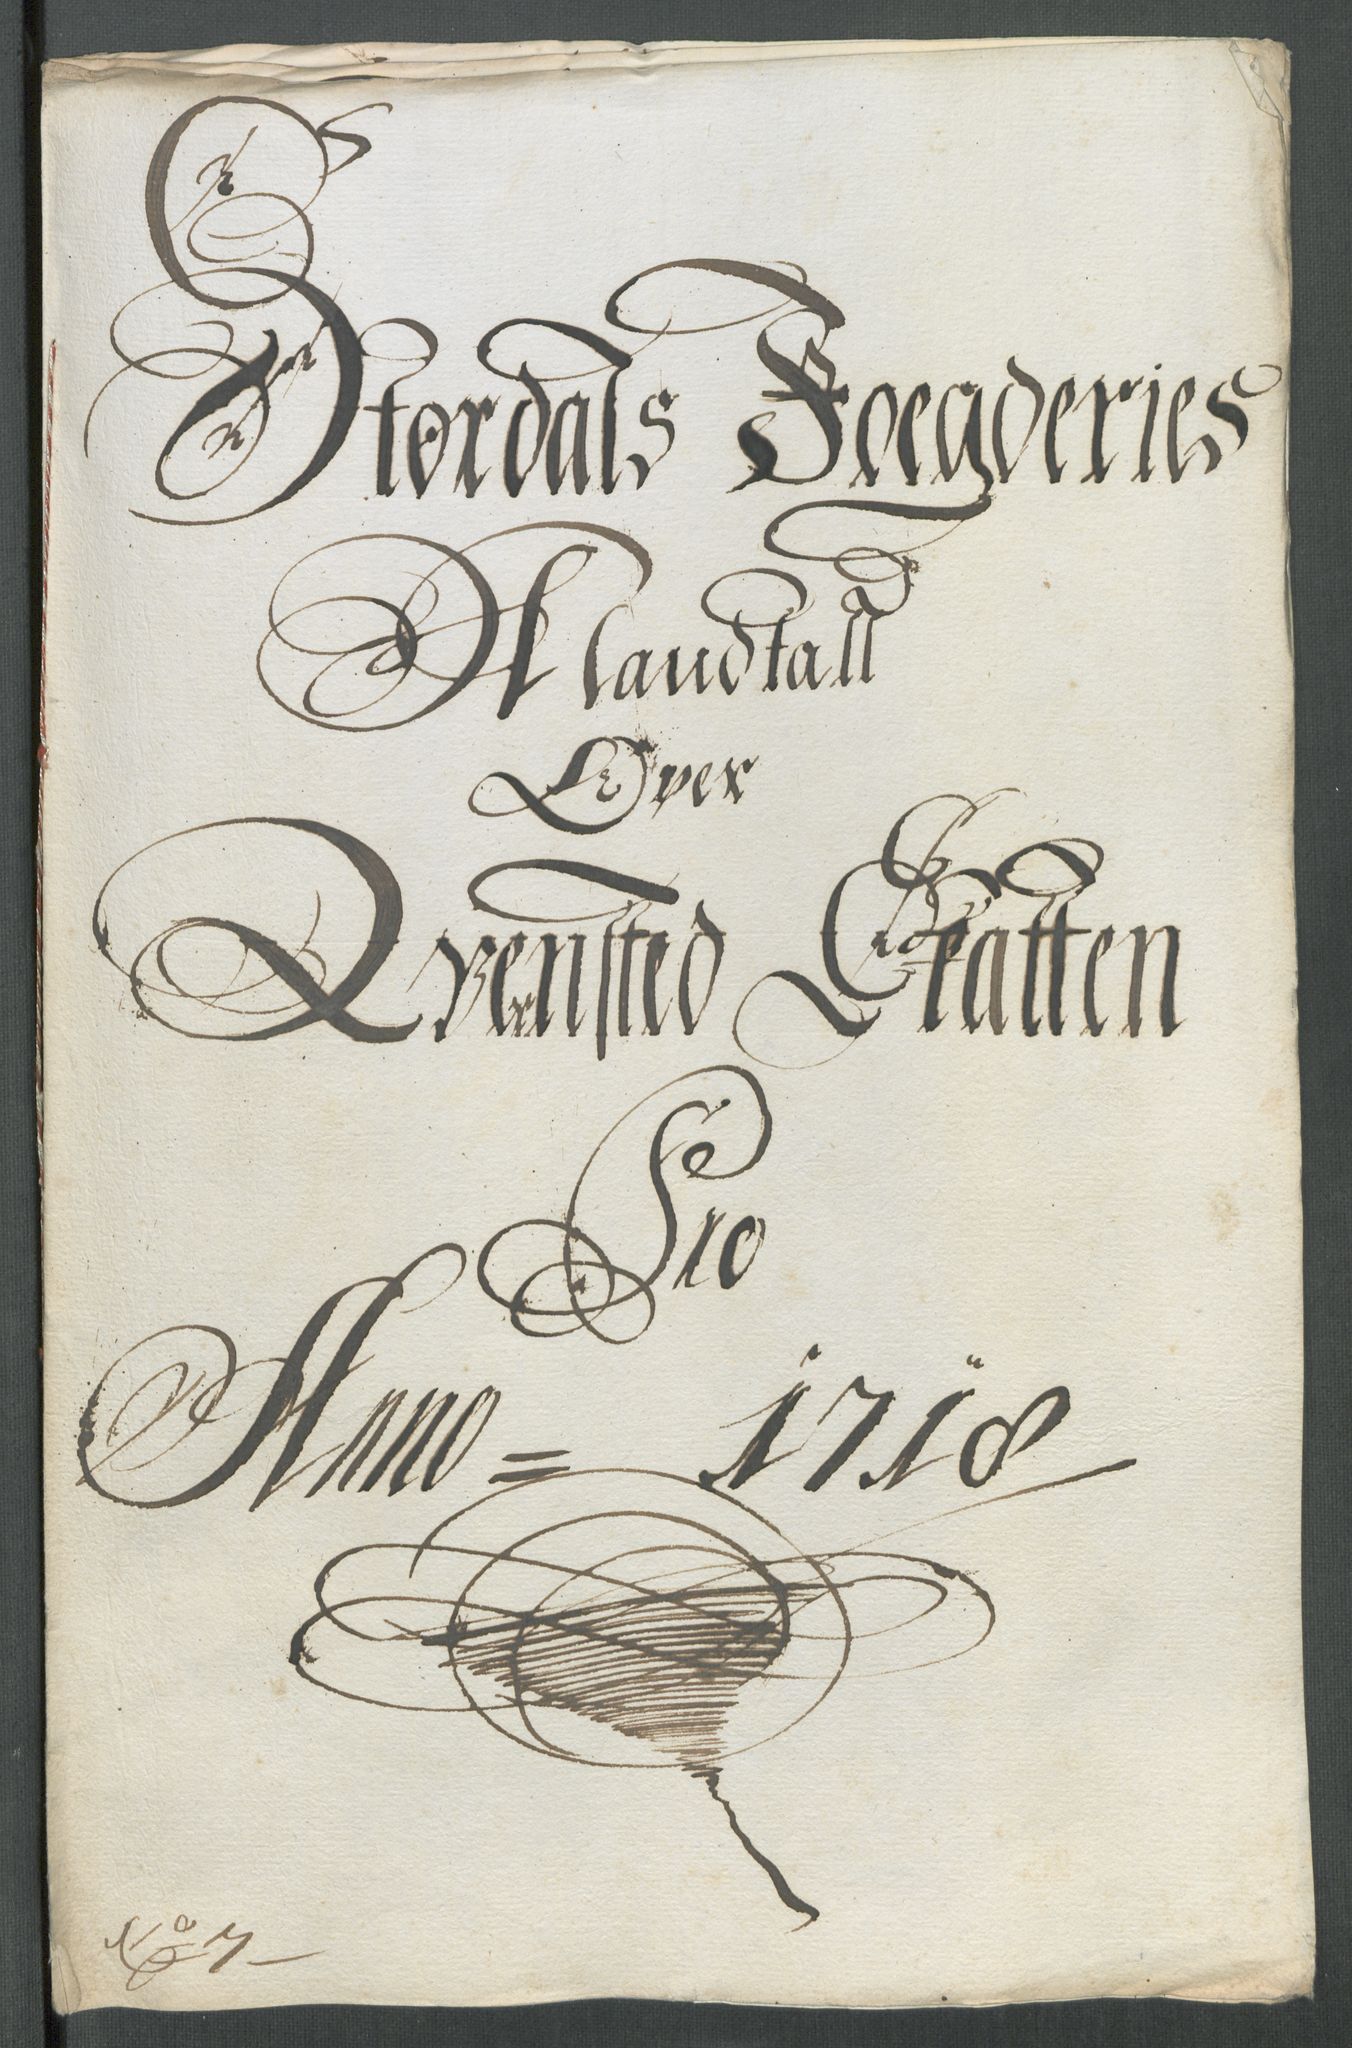 Størdals Foegderies
Mandtall
Over
Qvensted Skatten
Pro
Anno = 1718
No 7